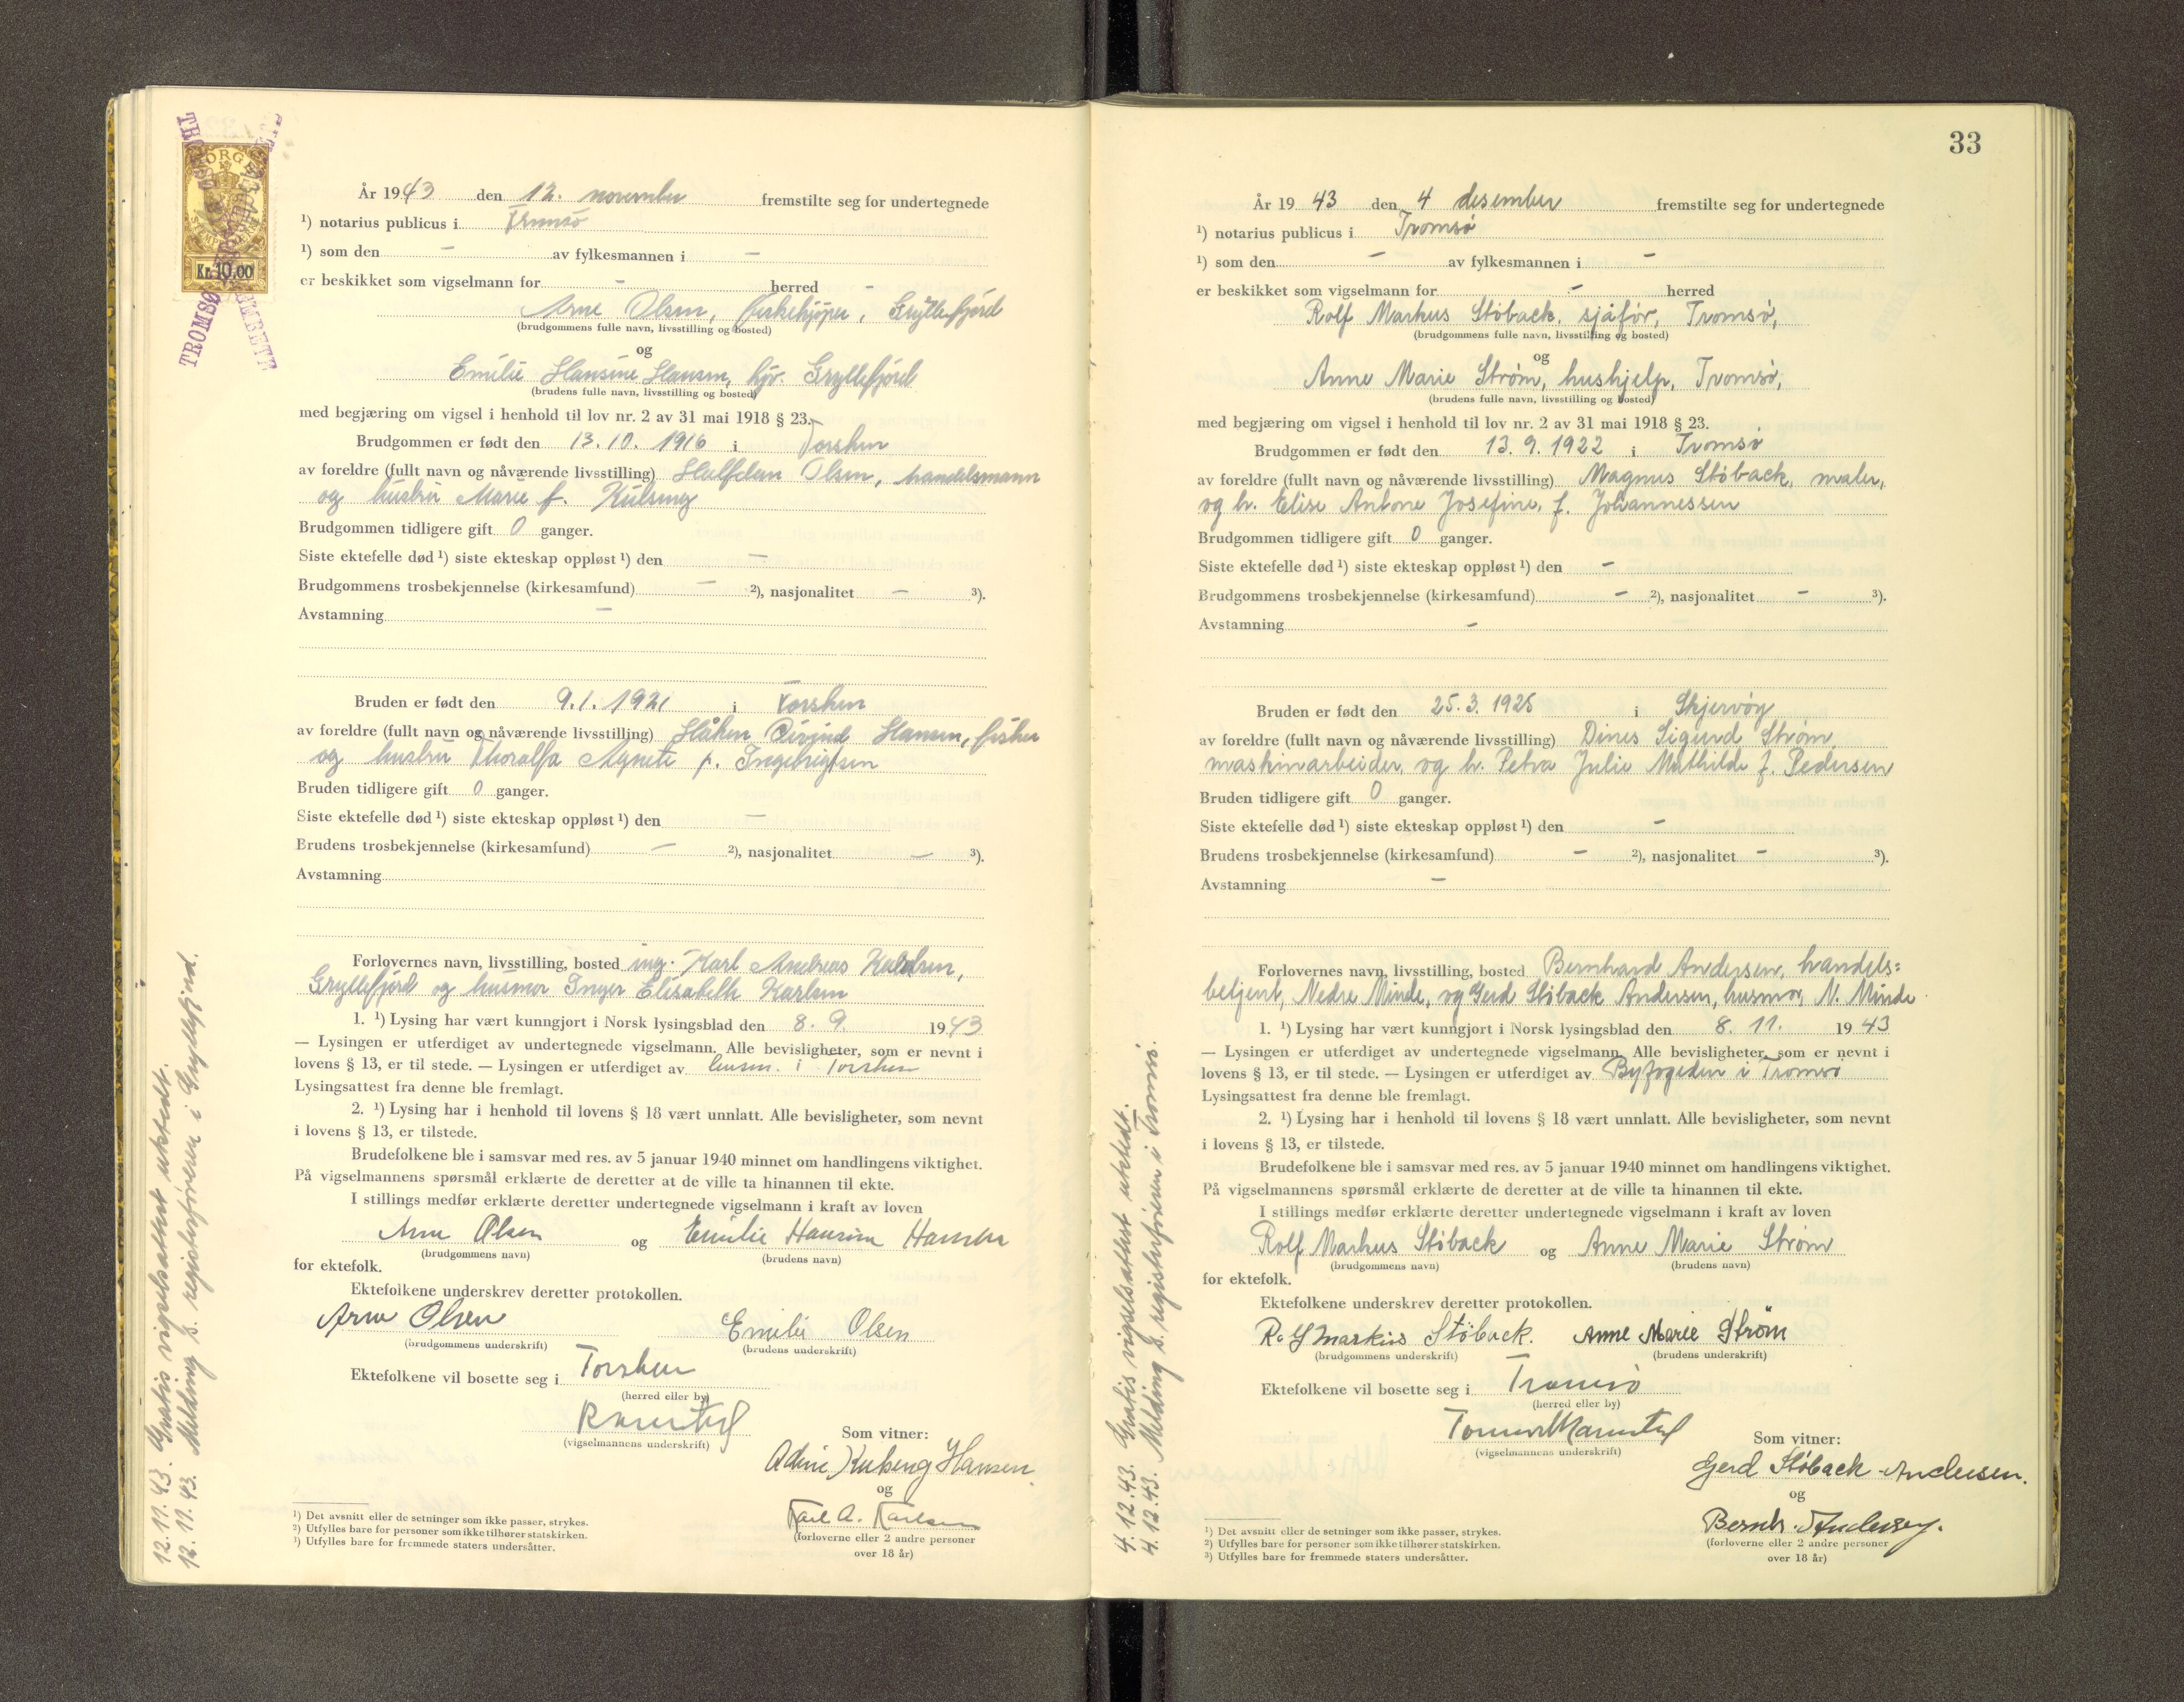 NORGE
Kr. 10.00
TROMSØ
År 1943 den 12. november fremstilte seg for undertegnede
¹) notarius publicus i Tromsø
¹) som den - av fylkesmannen i -
er beskikket som vigselmann for - herred -
Arne Olsen, fiskekjøper, Gryllefjord
(brudgommens fulle navn, livsstilling og bosted)
og
Emilie Hansine Hansen, hjv. Gryllefjord
(brudens fulle navn, livsstilling og bosted)
med begjæring om vigsel i henhold til lov nr. 2 av 31 mai 1918 § 23.
Brudgommen er født den 13.10.1916 i Torsken
av foreldre (fullt navn og nåværende livsstilling) Halfdan Olsen, handelsmann
og hustru Marie f.
Brudgommen tidligere gift 0 ganger.
Siste ektefelle død ¹) siste ekteskap oppløst ¹) den -
Brudgommens trosbekjennelse (kirkesamfund) - ²), nasjonalitet - ³).
Avstamning -
Bruden er født den 9.1.1921 i Torsken
av foreldre (fullt navn og nåværende livsstilling) Håkon Eivind Hansen, fisker
og hustru Thoralfa Agnete f. Ingebrigtsen
Bruden tidligere gift 0 ganger.
Siste ektefelle død ¹) siste ekteskap oppløst ¹) den -
Brudens trosbekjennelse (kirkesamfund) - ²), nasjonalitet - ³).
Avstamning
Forlovernes navn, livsstilling, bosted ing. Karl Andreas
Gryllefjord og husmor Inger Elisabeth Karlsen
1. ¹) Lysing har vært kunngjort i Norsk lysingsblad den 8. 9. 1943
— Lysingen er utferdiget av undertegnede vigselmann. Alle bevisligheter, som er nevnt i
lovens § 13, er til stede. — Lysingen er utferdiget av lensm. i Torsken
Lysingsattest fra denne ble fremlagt.
2. ¹) Lysing har i henhold til lovens § 18 vært unnlatt. Alle bevisligheter, som nevnt
i lovens § 13, er tilstede.
Brudefolkene ble i samsvar med res. av 5 januar 1940 minnet om handlingens viktighet.
På vigselmannens spørsmål erklærte de deretter at de ville ta hinannen til ekte.
I stillings medfør erklærte deretter undertegnede vigselmann i kraft av loven
Arne Olsen og Emilie Hansine Hansen
(brudgommens navn) (brudens navn)
for ektefolk.
Ektefolkene underskrev deretter protokollen.
Arne Olsen Emilie Olsen
(brudgommens underskrift) (brudens underskrift)
Ektefolkene vil bosette seg i Torsken
(herred eller by)
(vigselmannens underskrift)
Som vitner:
Adine Hansen
og
Karl A. Karlsen
(forloverne eller 2 andre personer
over 18 år)
¹) Det avsnitt eller de setninger som ikke passer, strykes.
²) Utfylles bare for personer som ikke tilhører statskirken.
³) Utfylles bare for fremmede staters undersåtter.
12.11.43. Gratis vigselsattest utstedt.
12.11.43. Melding s. registerføreren i Gryllefjord.
33
År 1943 den 4 desember fremstilte seg for undertegnede
¹) notarius publicus i Tromsø
¹) som den - av fylkesmannen i -
er beskikket som vigselmann for - herred
Rolf Markus Støback, sjåfør, Tromsø,
(brudgommens fulle navn, livsstilling og bosted)
og
Anne Marie Strøm, hushjelp, Tromsø,
(brudens fulle navn, livsstilling og bosted)
med begjæring om vigsel i henhold til lov nr. 2 av 31 mai 1918 § 23.
Brudgommen er født den 13.9.1922 i Tromsø
av foreldre (fullt navn og nåværende livsstilling) Magnus Støback, maler,
og h. Elise Antone Josefine, f. Johannessen
Brudgommen tidligere gift 0 ganger.
Siste ektefelle død ¹) siste ekteskap oppløst ¹) den -
Brudgommens trosbekjennelse (kirkesamfund) - ²), nasjonalitet - ³).
Avstamning -
Bruden er født den 25.3.1925 i Skjervøy
av foreldre (fullt navn og nåværende livsstilling) Dines Sigurd Strøm
maskinarbeider, og h. Petra Julie Mathilde f. Pedersen
Bruden tidligere gift 0 ganger.
Siste ektefelle død ¹) siste ekteskap oppløst ¹) den -
Brudens trosbekjennelse (kirkesamfund) - ²), nasjonalitet - ³).
Avstamning -
Forlovernes navn, livsstilling, bosted Bernhard Andersen, handels=
betjent, Nedre Minde, og Gerd Støback Andersen, husmor, N. Minde
1. ¹) Lysing har vært kunngjort i Norsk lysingsblad den 8. 11. 1943
— Lysingen er utferdiget av undertegnede vigselmann. Alle bevisligheter, som er nevnt i
lovens § 13, er til stede. — Lysingen er utferdiget av Byfogden i Tromsø
Lysingsattest fra denne ble fremlagt.
2. ¹) Lysing har i henhold til lovens § 18 vært unnlatt. Alle bevisligheter, som nevnt
i lovens § 13, er tilstede.
Brudefolkene ble i samsvar med res. av 5 januar 1940 minnet om handlingens viktighet.
På vigselmannens spørsmål erklærte de deretter at de ville ta hinannen til ekte.
I stillings medfør erklærte deretter undertegnede vigselmann i kraft av loven
Rolf Markus Støback og Anne Marie Strøm
(brudgommens navn) (brudens navn)
for ektefolk.
Ektefolkene underskrev deretter protokollen.
Rolf Markus Støback. Anne Marie Strøm
(brudgommens underskrift) (brudens underskrift)
Ektefolkene vil bosette seg i Tromsø
(herred eller by)
(vigselmannens underskrift)
Som vitner:
Gerd Støback Andersen.
og
Bernh. Andersen.
(forloverne eller 2 andre personer
over 18 år)
¹) Det avsnitt eller de setninger som ikke passer, strykes.
²) Utfylles bare for personer som ikke tilhører statskirken.
³) Utfylles bare for fremmede staters undersåtter.
4.12.43. Gratis vigselsattest utstedt.
4.12.43. Melding s. registerføreren i Tromsø.